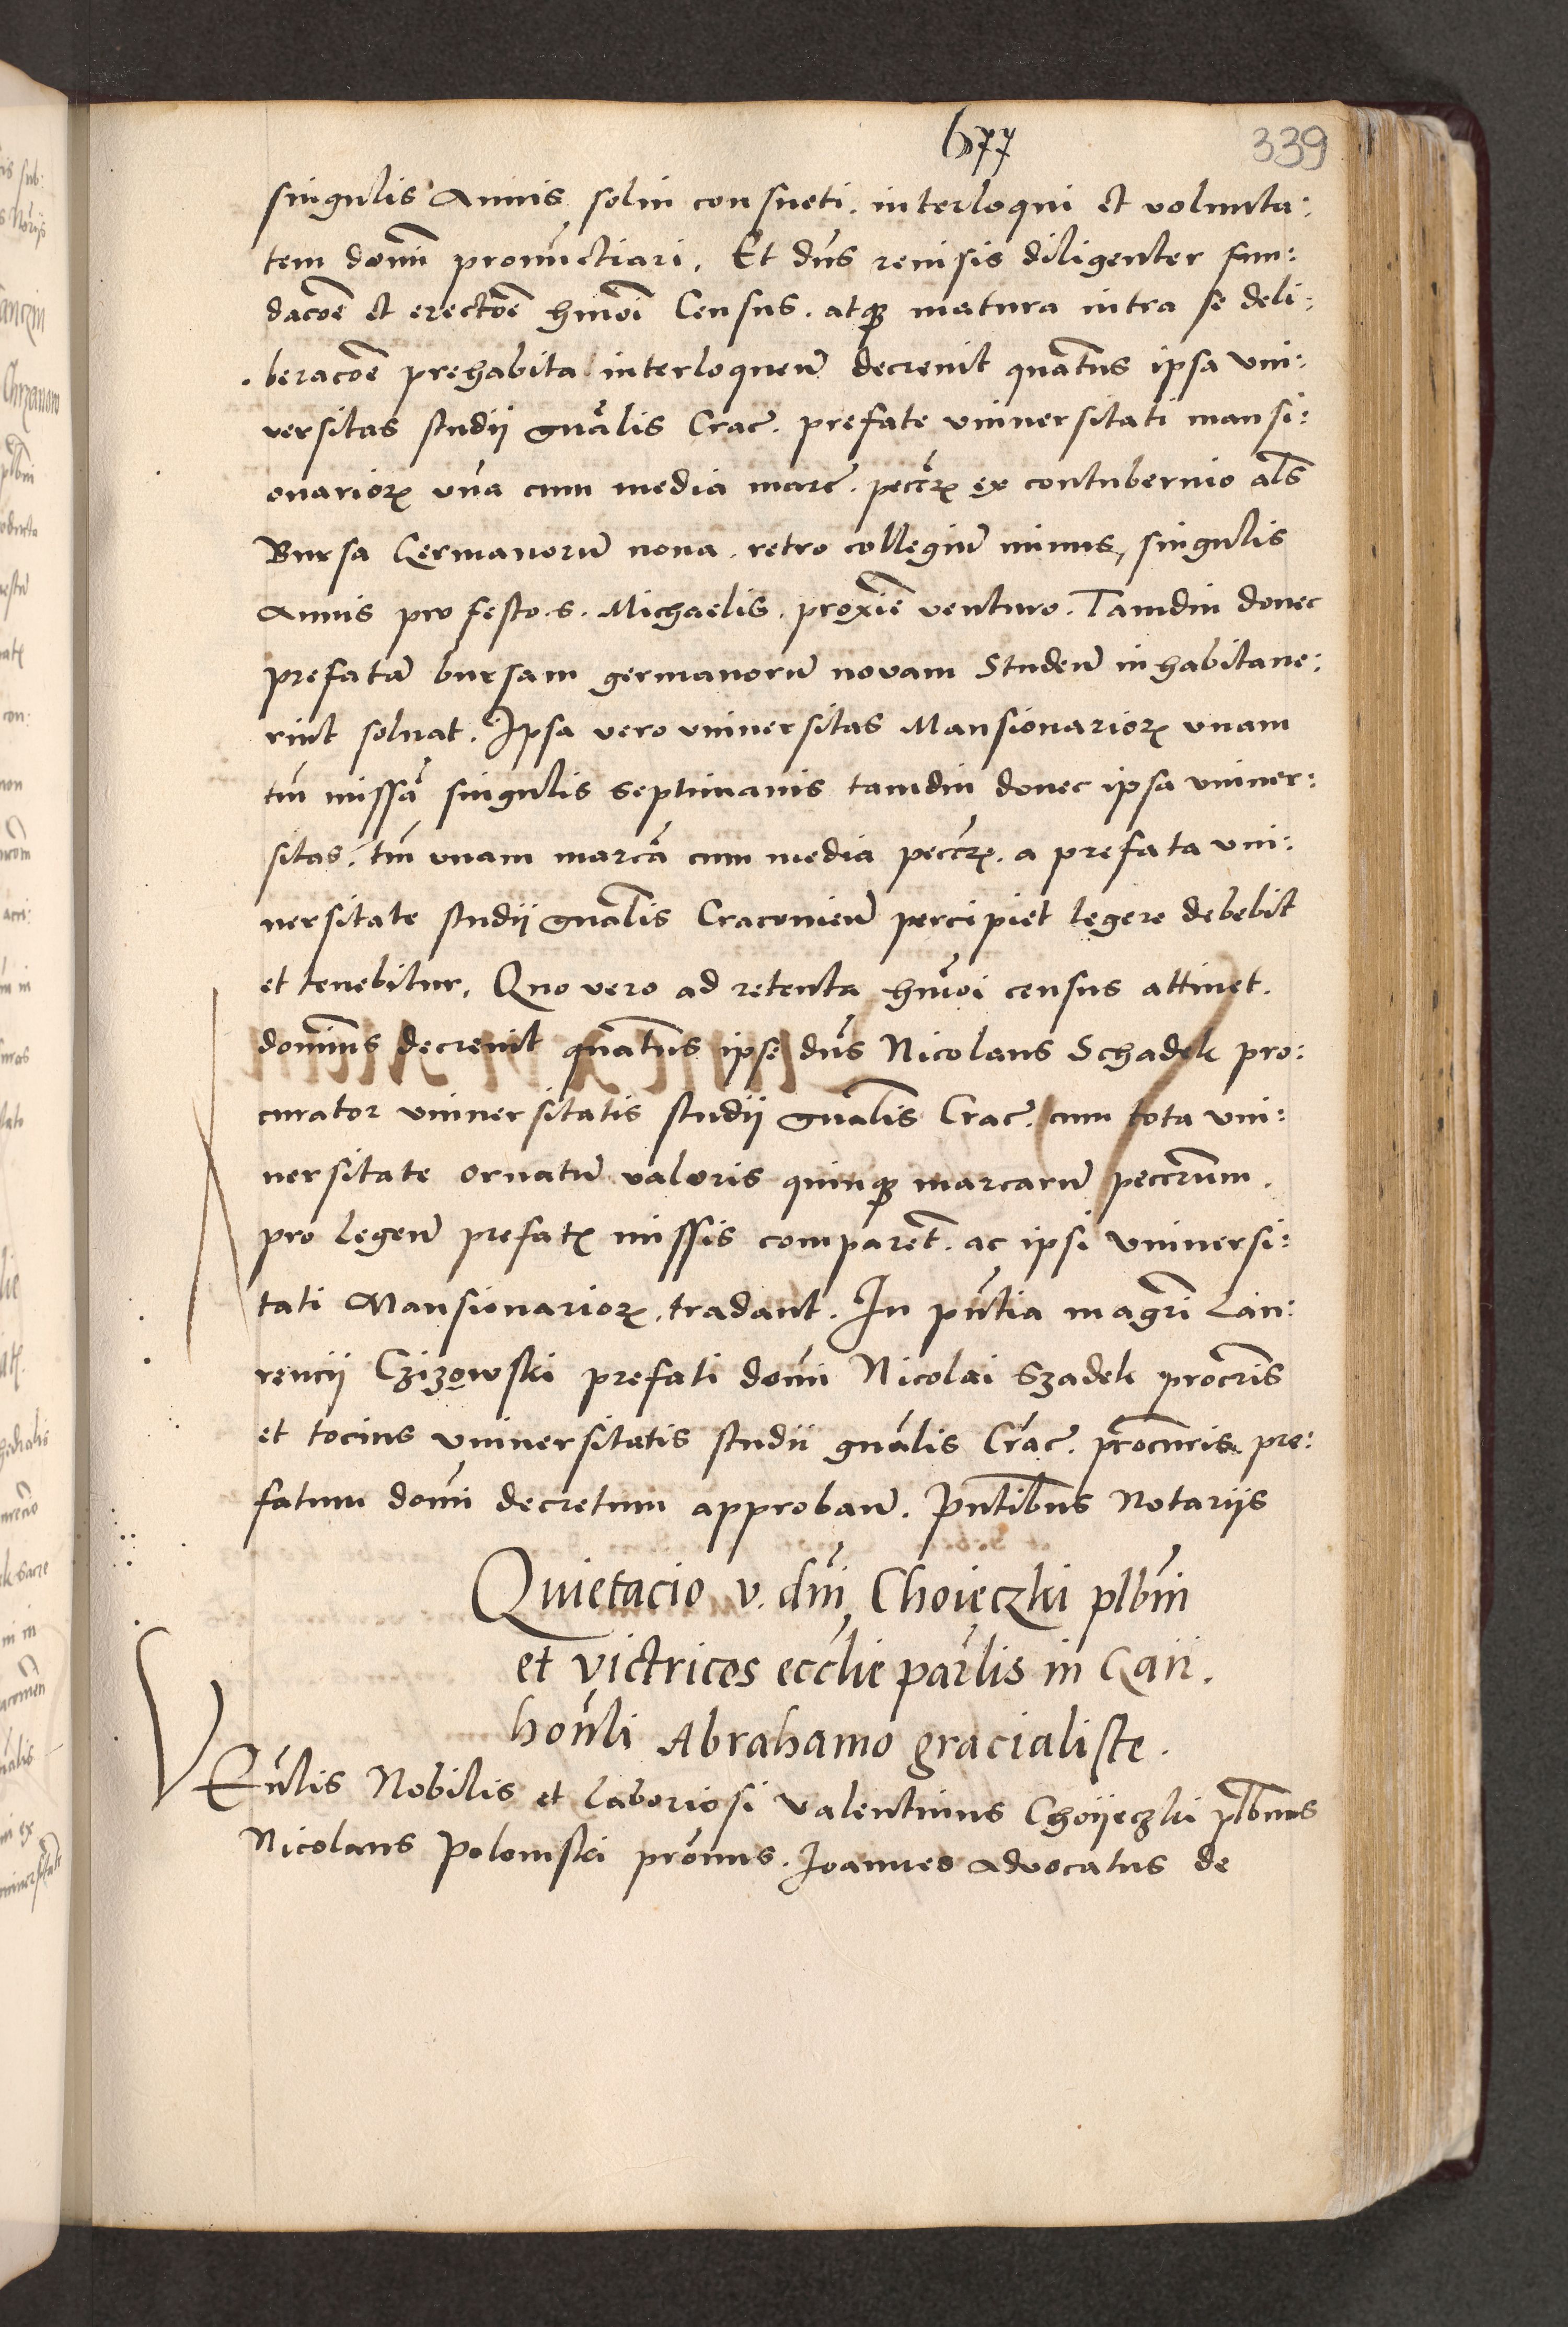 677
339
singulis Annis solui consueti. interloqui et volunta:
tem domini pronūctiari. Et dn̄s reuisis diligenter fun:
dacōe et erectōe hmōi Census. atqꝫ matura intra se deli:
beracōe prehabita interloquen̄ decreuit quaten̄s ipsa vni:
versitas studij gn̄alis Crac̄. prefate vniuersitati mansi:
onarioꝝ vna cum media marc̄. peccūꝝ ex contubernio als̄
Bursa Germanorū noua. retro collegiū minus, singulis
Annis pro festo. s. Michaelis. proxīe venturo. Tamdiu donec
prefatā bursam germanorū novam Studen̄ inhabitaue:
rint soluat. Ipsa vero vniuersitas Mansionarioꝝ vnam
tm̄ missā singulis septimanis tamdiu donec ipsa vniuer:
sitas. tm̄ vnam marcā cum media peccūꝝ. a prefata vni:
uersitate studij gn̄alis Cracouien̄ percipiet legere debebit
et tenebitur. Quo vero ad retenta hmōi census attinet.
domin̄s decreuit quaten̄s ipse dn̄s Nicolaus Schadek pro:
curator vniuersitatis studij gn̄alis Crac̄. cum tota vni:
uersitate ornatū valoris quinqꝫ marcarū peccrum.
pro legen̄ prefatꝭ missis comparent̄. ac ipsi vniuersi:
tati Mansionarioꝝ. tradant. In pn̄tia magr̄i Lau:
rencij Czizowski prefati domi Nicolai Szadek procr̄is
et tocius vniuersitatis studii gn̄alis Crac̄. procuris. pre:
fatum domi decretum approban̄. Pn̄tibus Notarijs
Quietacio v. dni Choieczki plbni
et victrices eccl̄ie par̄lis in Gaii.
hon̄li Abrahamo gracialiste.
VEn̄lis Nobilis et Laboriosi Valentinus Choijeczki plbnus
Nicolaus Polomski pron̄us. Joannes Advocatus de